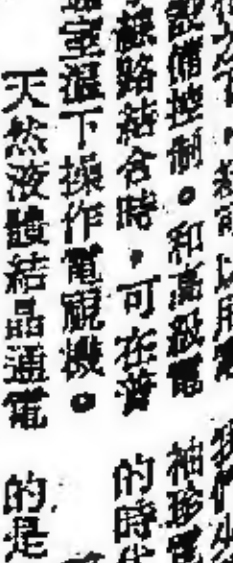 可以用
設備控制。和高級電
線路結合時,可在普
室溫下操作電視機。
天然液體結晶通電
我們
袖珍電
的時代
的是